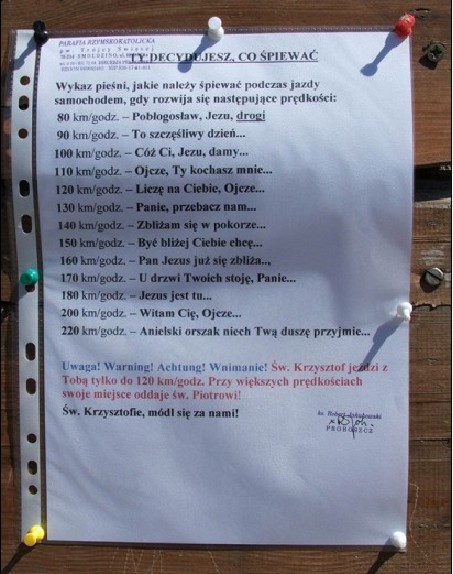 PARAFIA RZYMSKOKATOLICKA
p.w. Trójcy Świętej
TY DECYDUJESZ, CO ŚPIEWAĆ
Wykaz pieśni, jakie należy śpiewać podczas jazdy
samochodem, gdy rozwija się następujące prędkości:
80 km/godz. – Pobłogosław, Jezu, drogi
90 km/godz. – To szczęśliwy dzień...
100 km/godz. – Cóż Ci, Jezu, damy...
110 km/godz. – Ojcze, Ty kochasz mnie...
120 km/godz. – Liczę na Ciebie, Ojcze...
130 km/godz. – Panie, przebacz nam...
140 km/godz. – Zbliżam się w pokorze...
150 km/godz. – Być bliżej Ciebie chcę...
160 km/godz. – Pan Jezus już się zbliża...
170 km/godz. – U drzwi Twoich stoję, Panie...
180 km/godz. – Jezus jest tu...
200 km/godz. – Witam Cię, Ojcze...
220 km/godz. – Anielski orszak niech Twą duszę przyjmie...
Uwaga! Warning! Achtung! Wnimanie! Św. Krzysztof jeździ z
Tobą tylko do 120 km/godz. Przy większych prędkościach
swoje miejsce oddaje św. Piotrowi!
Św. Krzysztofie, módl się za nami!
ks. Robert
PROBOSZCZ